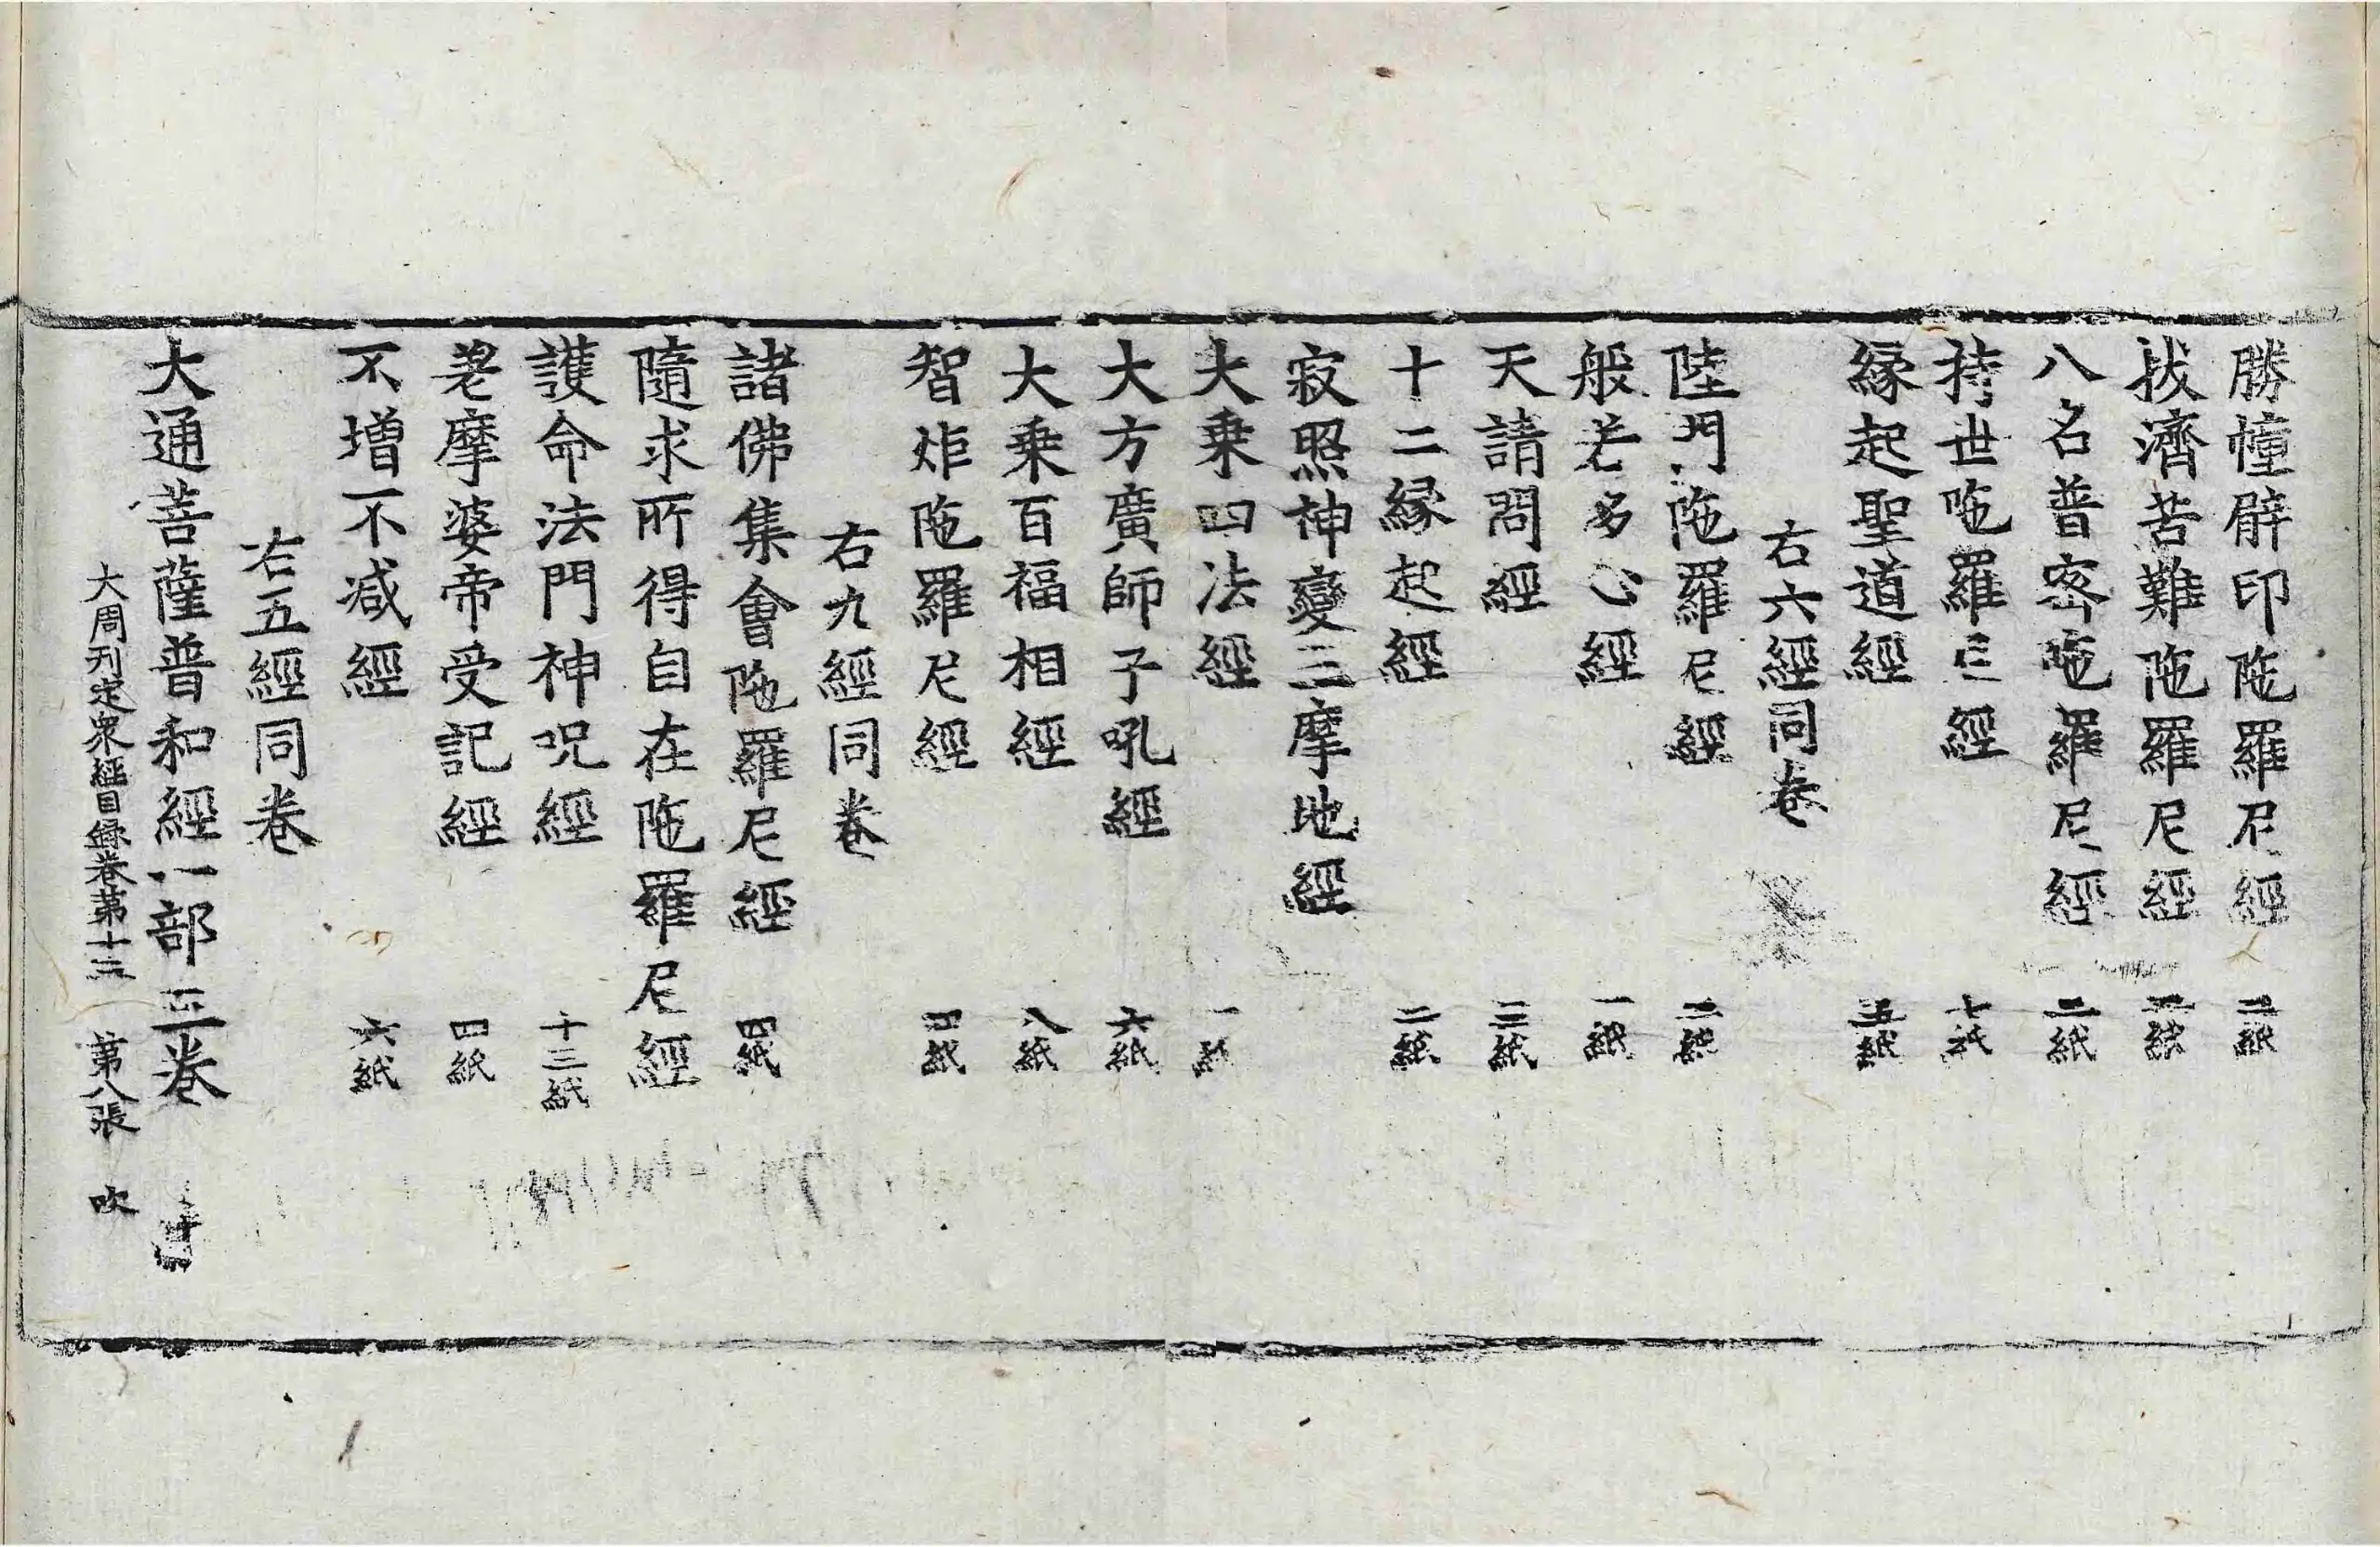 勝幢臂印陁羅尼經 二紙
拔濟苦難陁羅尼經 二紙
八名普密陁羅尼經 二紙
持世陁羅尼經 七紙
縁起聖道經 五紙
右六經同卷
陸門陁羅尼經 二紙
般若多心經 一紙
天請問經 三紙
十二縁起經 二紙
寂照神變三摩地經
大乗四法經 一紙
大方廣師子吼經 六紙
大乗百福相經 八紙
智炬陁羅尼經 四紙
右九經同卷
諸佛集會陁羅尼經 四紙
隨求所得自在陁羅尼經
護命法門神呪經 十三紙
差摩婆帝受記經 四紙
不增不减經 六紙
右五經同卷
大通菩薩普和經一部三卷
大周刊定衆經目録卷第十三 第八張 吹